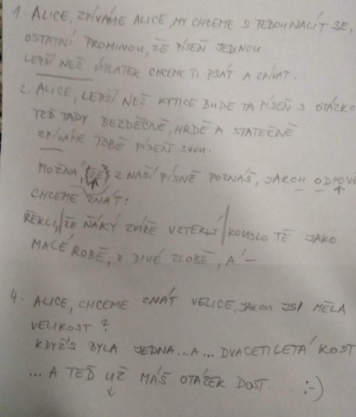 1. ALICE, ZPÍVÁME ALICE, MY CHCEME S TEBOU NACÍT SE,
OSTATNÍ PROMINOU, ŽE PÍSEŇ JEDINOU
LEPŠÍ NEŽ CHCEM TI PSÁT A ZPÍVAT.
2. ALICE, LEPŠÍ NEŽ KYTICE BUDE TA PÍSEŇ S OTÁZKO
TEĎ TADY BEZDĚČNĚ, HRDĚ A STATEČNĚ
ZPÍVÁME TOBĚ PÍSEŇ SVOU.
MOŽNÁ, (ŽE) Z NAŠÍ PÍSNĚ POZNÁŠ, JAKOU ODPOV
CHCEME ZNÁT!
ŘEKLI, ŽE ŇÁKÝ ZVÍŘE VZTEKLÝ KOUSLO TĚ JAKO
MALÉ ROBĚ, V DIVÉ ZLOBĚ, A' –
4. ALICE, CHCEME ZNÁT VELICE, JAKOU JSI MĚLA
VELIKOST?
KDYŽ'S BYLA JEDNA...A... DVACETILETÁ KOST
... A TEĎ UŽ MÁŠ OTÁZEK DOST. :-)